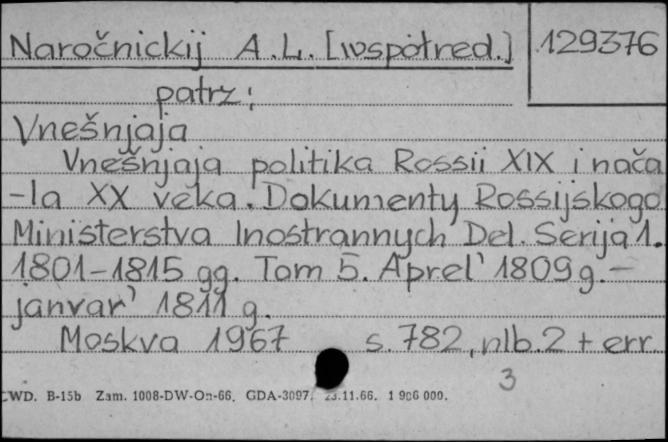 Naročnickij A.L. [współred.] 129376
patrz:
Vnešnjaja
Vnešnjaja politika Rossii XIX i nača
-la XX veka. Dokumenty Rossijskogo
Ministerstva Inostrannych Del. Serija 1.
1801-1815 gg. Tom 5. Aprel' 1809 g. -
janvar' 1811 g.
Moskva 1967 s. 782, nlb. 2 + err.
3
CWD. B-15b Zam. 1008-DW-On-66. GDA-3097. 23.11.66. 1 906 000.